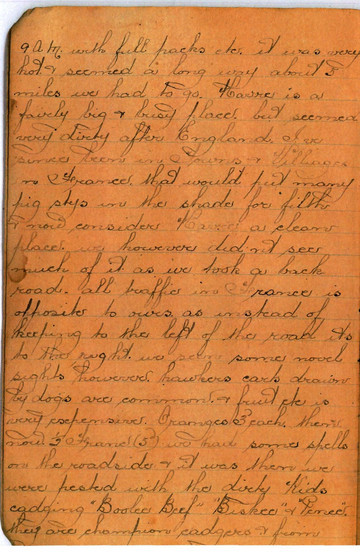 9 a.m. with full packs etc. it was very
hot & seemed a long way about 5
miles we had to go. Havre is a
fairly big & busy place. but seemed
very dirty after England. I've
since been in Towns & Villages
in France. that would put many
pig stys in the shade for filth
& now consider Havre a clean
place. we however did not see
much of it as we took a back
road. all traffic in France is
opposite to ours. as instead of
keeping to the left of the road its
to the right. we seen some novel
sights however. hawkers carts drawn
by dogs are common. & fruit etc is
very expensive. Oranges 3 each. then
now we had some spells
on the roadside & it was then we
were pested with the dirty "Kids
cadging "Boolee Beef" "Biskee" & "Penee".
they are champion cadgers & from